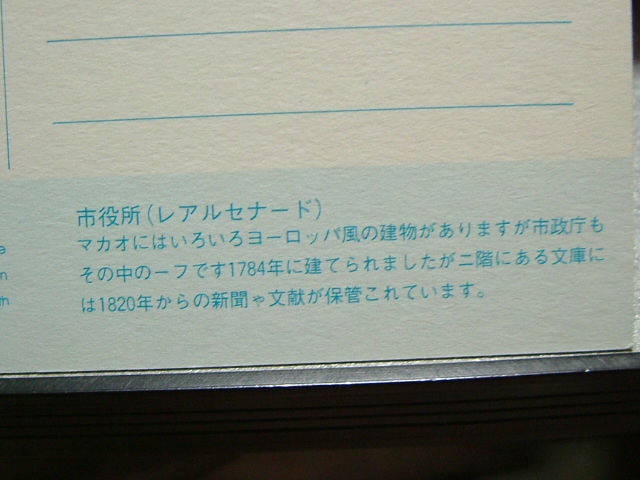 市役所(レアルセナード)
マカオにはいろいろヨーロッパ風の建物がありますが市政庁も
その中の一フです1784年に建てられましたがニ階にある文庫に
は1820年からの新聞ゃ文献が保管これています。
e
n
th